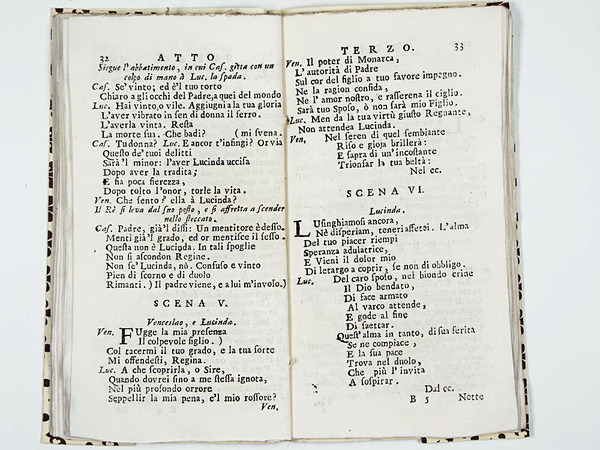 32 ATTO
Siegue l'abbatimento, in cui Cas. gitta con un
colpo di mano à Luc. la spada.
Cas. Se' vinto; ed è'l tuo torto
Chiaro a gli occhi del Padre, a quei del mondo
Luc. Hai vinto, o vile. Aggiugni a la tua gloria
L'aver vibrato in sen di donna il ferro.
L'averla vinta. Resta
La morte sua. Che badi? (mi svena.
Cas. Tu donna? Luc. E ancor t'infingi? Or via
Questo de' tuoi delitti
Sarà'l minor: l'aver Lucinda uccisa
Dopo aver la tradita;
E fia poca fierezza,
Dopo tolto l'onor, torle la vita.
Ven. Che sento? ella è Lucinda?
Il Rè si leva dal suo posto, e si affretta a scender
nello steccato.
Cas. Padre, già'l dissi: Un mentitore è desso.
Menti già'l grado, ed or mentisce il sesso.
Questa non è Lucinda. In tali spoglie
Non si ascondon Regine.
Non se' Lucinda, nò. Confuso e vinto
Pien di scorno e di duolo
Rimanti. ) Il padre viene, e a lui m'involo.)
SCENA V.
Venceslao, e Lucinda.
Ven. FUgge la mia presenza
Il colpevole figlio. )
Col tacermi il tuo grado, e la tua sorte
Mi offendesti, Regina.
Luc. A che scoprirla, o Sire,
Quando dovrei sino a me stessa ignota,
Nel più profondo orrore
Seppellir la mia pena, e'l mio rossore?
Ven.
TERZO. 33
Ven. Il poter di Monarca,
L'autorità di Padre
Sul cor del figlio a tuo favore impegno.
Ne la ragion confida,
Ne l'amor nostro, e rasserena il ciglio.
Sarà tuo Sposo, ò non sarà mio Figlio.
Luc. Men da la tua virtù giusto Regnante,
Non attendea Lucinda.
Ven. Nel seren di quel sembiante
Riso e gioja brillerà:
E saprà di un'incostante
Trionfar la tua beltà:
Nel ec.
SCENA VI.
Lucinda.
LUsinghiamosi ancora,
Nè disperiam, teneri affetti. L'alma
Del tuo piacer riempi
Speranza adulatrice,
E Vieni il dolor mio
Di letargo a coprir, se non di obbligo.
Luc. Del caro sposo, nel biondo crine
Il Dio bendato,
Di face armato
Al varco attende,
E gode al fine
Di saettar.
Quest'alma in tanto, di sua ferita
Se ne compiace,
E la sua pace
Trova nel duolo,
Che più l'invita
A sospirar.
Dal ec.
B 5 Notte